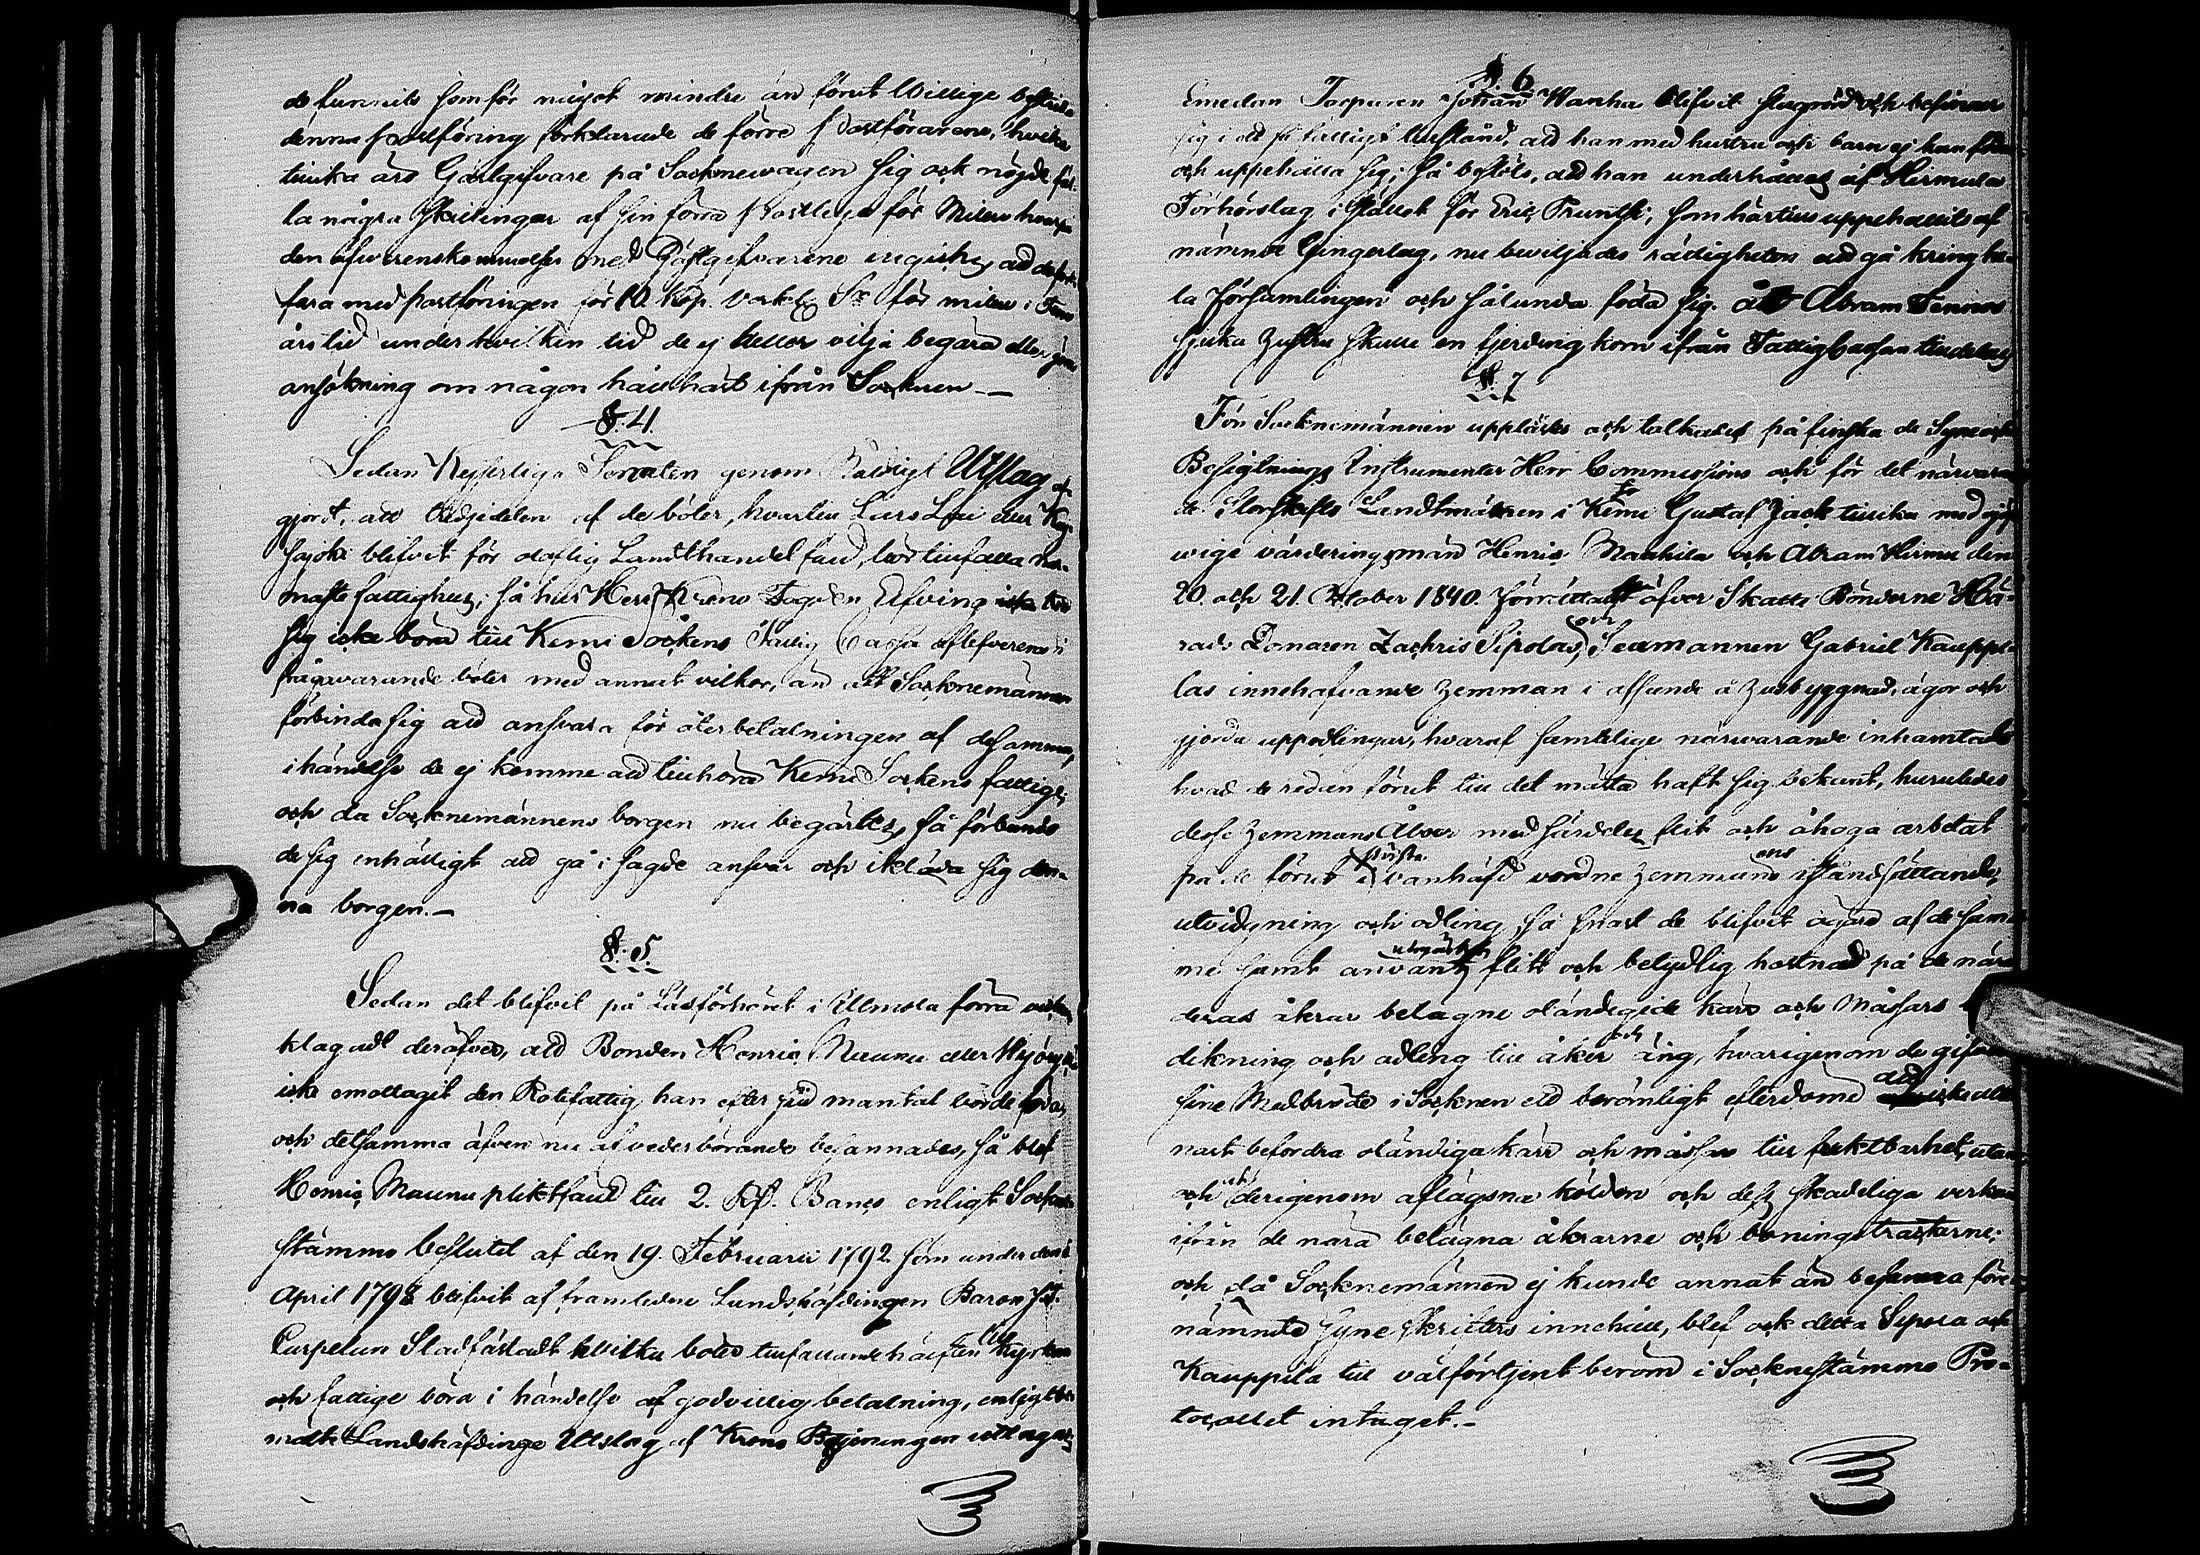 de funnits som för något mindre än förut Villige bestrida
denna postföring förklarade de förra Postförarene, hvilka
tillika äro Gästgifvare på Socknewägen sig ock nöjde fäl-
la några Skillingar af sin förra Postlega för Milen hvar-
den öfverenskommelse med Gästgifvarene ingicks, att de fort-
fara med postföringen för 10. Kop. Sr för milen i Fem
års tid under hvilken tid de ej heller vilja begära eller göra
ansökning om någon hållhäst ifrån Socknen —
§. 4.
Sedan Kejserliga Senaten genom Nådigt Utslag af-
gjort, att tredjedelen af de böter, hvartill Lars Lui eller Koi-
vajoki blifvit för olaflig Landthandel fäld, bör tillfalla när-
maste fattighus; så har Herr Krono Fogden Elfving
sig icke böra till Kemi Sockens Fattig Cassa aflefverera i
fråga varande böter med annat vilkor, än att Socknemännen
förbinda sig att ansvara för återbetalningen af desamma,
i händelse de ej komme att tillhöra Kemi Sockens fattige;
och då Socknemännens borgen nu begärtes, så förbundo
de sig enhälligt att gå i sagde ansvar och ikläda sig den-
na borgen. —
§. 5.
Sedan det blifvit på Läsförhöret i Illmola förra veckan
klagadt deröfver, att Bonden Henric Maunu eller
icke emottagit den Rotefattig, han efter sitt mantal borde föda,
och detsamma äfven nu af vederbörande besannades, så blef
Henric Maunu pliktfäld till 2. Rd. Banco enligt Sockne-
stämmo beslutet af den 19. Februarii 1792. som under den
April 1793 blifvit af framledne Landshöfdingen Baron
Carpelan Stadfästadt hvilka böter tillfallande hälften till Kyrkan
och fattige böra i händelse af godvillig betalning, enligt be-
mälte Landshöfdinge Utslag af Krono Betjeningen uttagas.
§. 6
Emedan Torparen Johan Wanha blifvit slagrörd och befinner
sig i ett så fattigt tillstånd, att han med hustru och barn ej kan föda
och uppehålla sig; så beslöts, att han underhålles af Hermula
Förhörslag i stället för Eric Pruntsi, som härtills uppehållits af
nämnde Gingerlag, nu beviljades rädigheten att gå kring he-
la församlingen och sålunda föda sig. åt Abram Tennos
sjuka hustru skulle en fjerding korn ifrån Fattigcassan tilldelas
§. 7
För Socknemännen upplästes och tolkades på finska de Syne och
Besigtnings Instrumenter Herr Commissions och för det närvaran-
de Storskifts Landtmätaren i Kemi Gustaf Jack tillika med
wige värderingsmän Henric Mauhila och Abram Hirmu den
20. och 21. October 1840. förrättat öfver Skatte Bönderne Hä-
rads Domaren Zachris Sipolas, och Sexmannen Gabriel Kauppi-
las innehafvande hemman i afseende å husbyggnad, ägor och
gjorda uppodlingar, hvaraf samtelige närwarande inhämtade
hvad de redan förut till det mätta haft sig bekant, huruledes
desse hemmans Åboer med särdeles flit och åhoga arbetat
på de förut i största vanhäfd vordne hemmanens iståndsättande,
utvidgning och odling, så snart de blifvit ägare af de sam-
me samt använt utmärkt flit och betydlig kostnad på de nära
deras åkrar belägne oländigade kärr och Måssars
dikning och odling till åker och äng, hvarigenom de gifvit
sine Medbröder i Socknen ett berömligt efterdöme att icke alle-
nast befordra oländiga kärr och måssar till fruktbarhet, utan
och derigenom aflägsna kölden och dess skadeliga verkan
ifrån de nära belägna åkrarne och boningstrackterne;
och då Socknemännen ej kunde annat än besanna före-
nämnde Syne skrifters innehåll, blef ock detta Sipola och
Kauppila till välförtjent beröm i Sockne stämmo Pro-
tocollet intaget. —